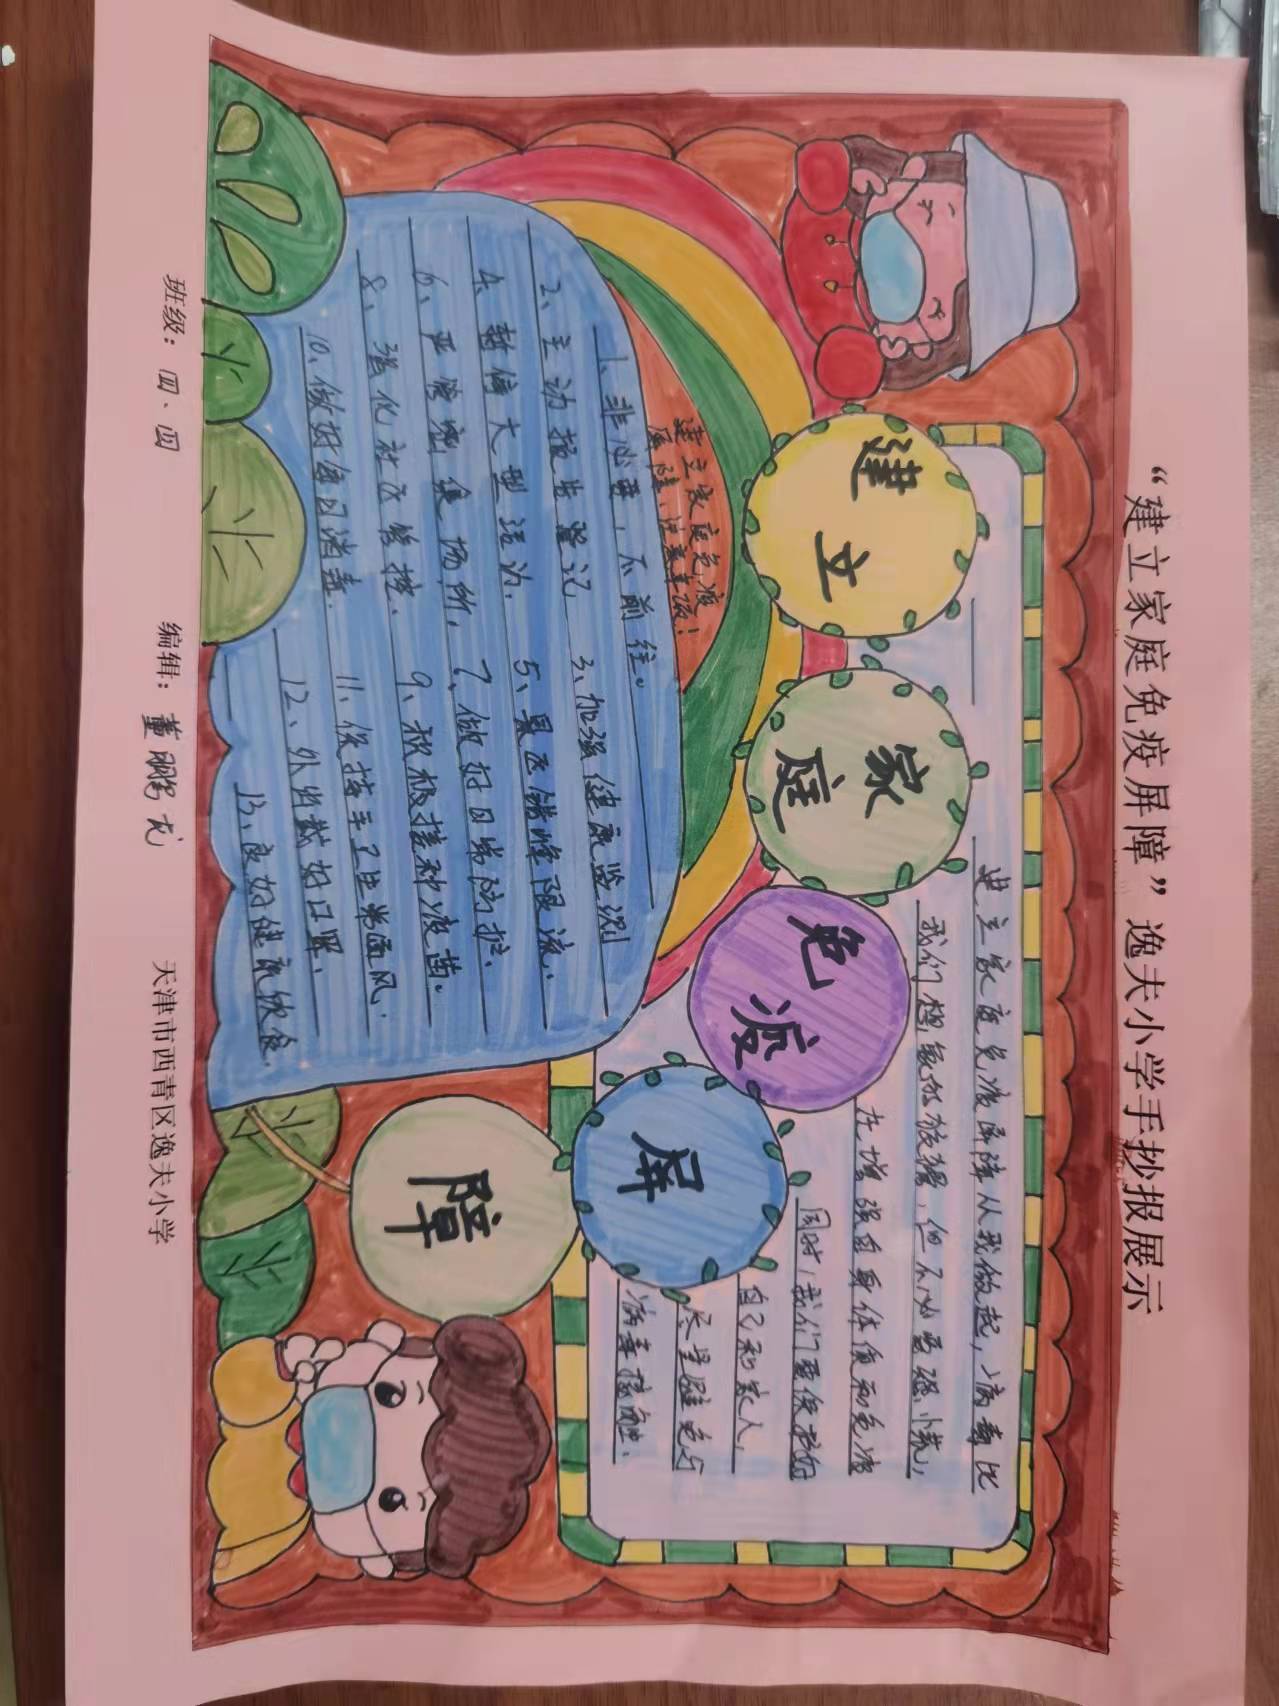 “建立家庭免疫屏障”逸夫小学手抄报展示
建立
家庭
免疫
屏
障
建立家庭免疫屏障从我做起，病毒比
我们想象的顽强，但不必要恐慌，
在增强自身体质和免疫
同时，我们要保护好
自己和家人，
尽量避免与
病毒接触。
建立家庭免疫
屏障，注意事项！
1、非必要，不前往。
2、主动报告登记 3、加强健康监测
4、暂停大型活动、 5、景区错峰限流、
6、严管密集场所， 7、做好日常防护、
8、强化社区管控、 9、积极接种疫苗。
10、做好每日消毒、 11、保持手卫生常通风、
12、外出戴好口罩、
13、良好健康饮食、
班级：四、四 编辑：董鹏龙 天津市西青区逸夫小学